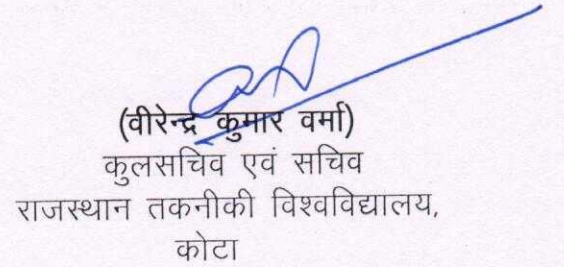 (वीरेन्द्र कुमार वर्मा)
कुलसचिव एवं सचिव
राजस्थान तकनीकी विश्वविद्यालय,
कोटा